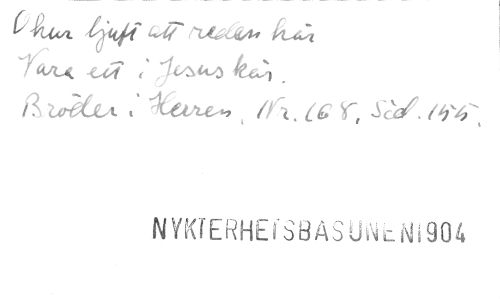 O hur ljuft att redan här
Vara ett i Jesus kär.
Bröder i Herren, Nr. 168, Sid. 155.
NYKTERHETSBASUNEN 1904